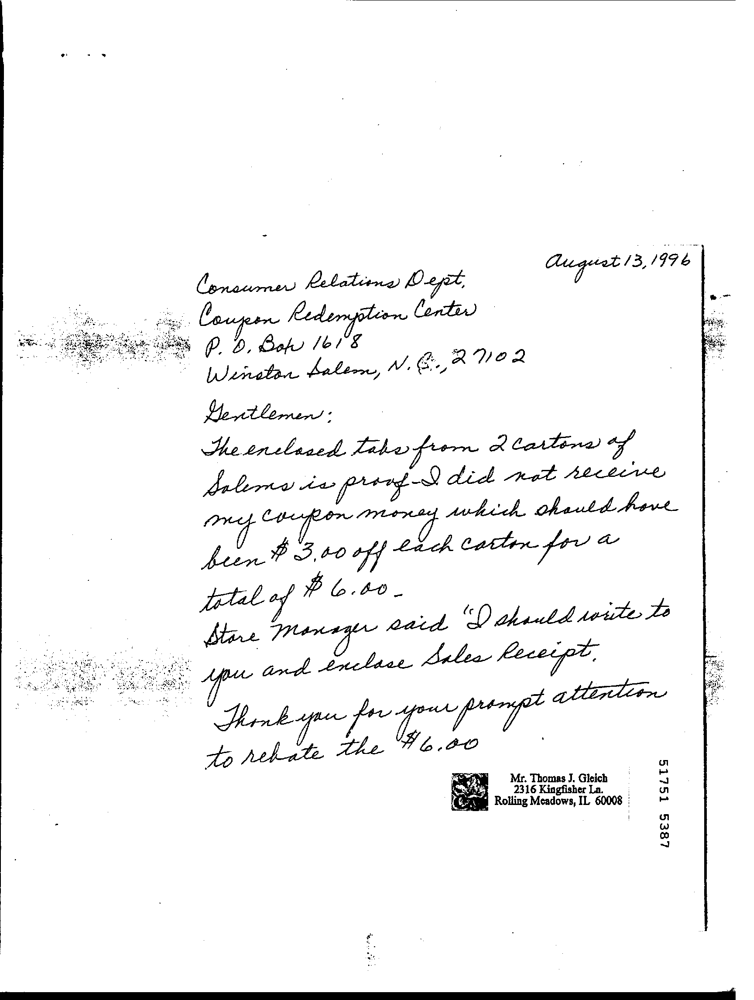 August 13, 1996
Consumer Relations Dept.
Coupon Redemption Center
P. O. Box 1618
Winston Salem, N. C., 27102
Gentlemen:
The enclosed tabs from 2 cartons of
Salems is proof - I did not receive
my coupon money which should have
been $3.00 off each carton for a
total of $6.00 -
Store Manager said "I should write to
you and enclose Sales Receipt.
Thank you for your prompt attention
to rebate the $6.00
Mr. Thomas J. Gleich
2316 Kingfisher Ln.
Rolling Meadows, IL 60008
51751 5387